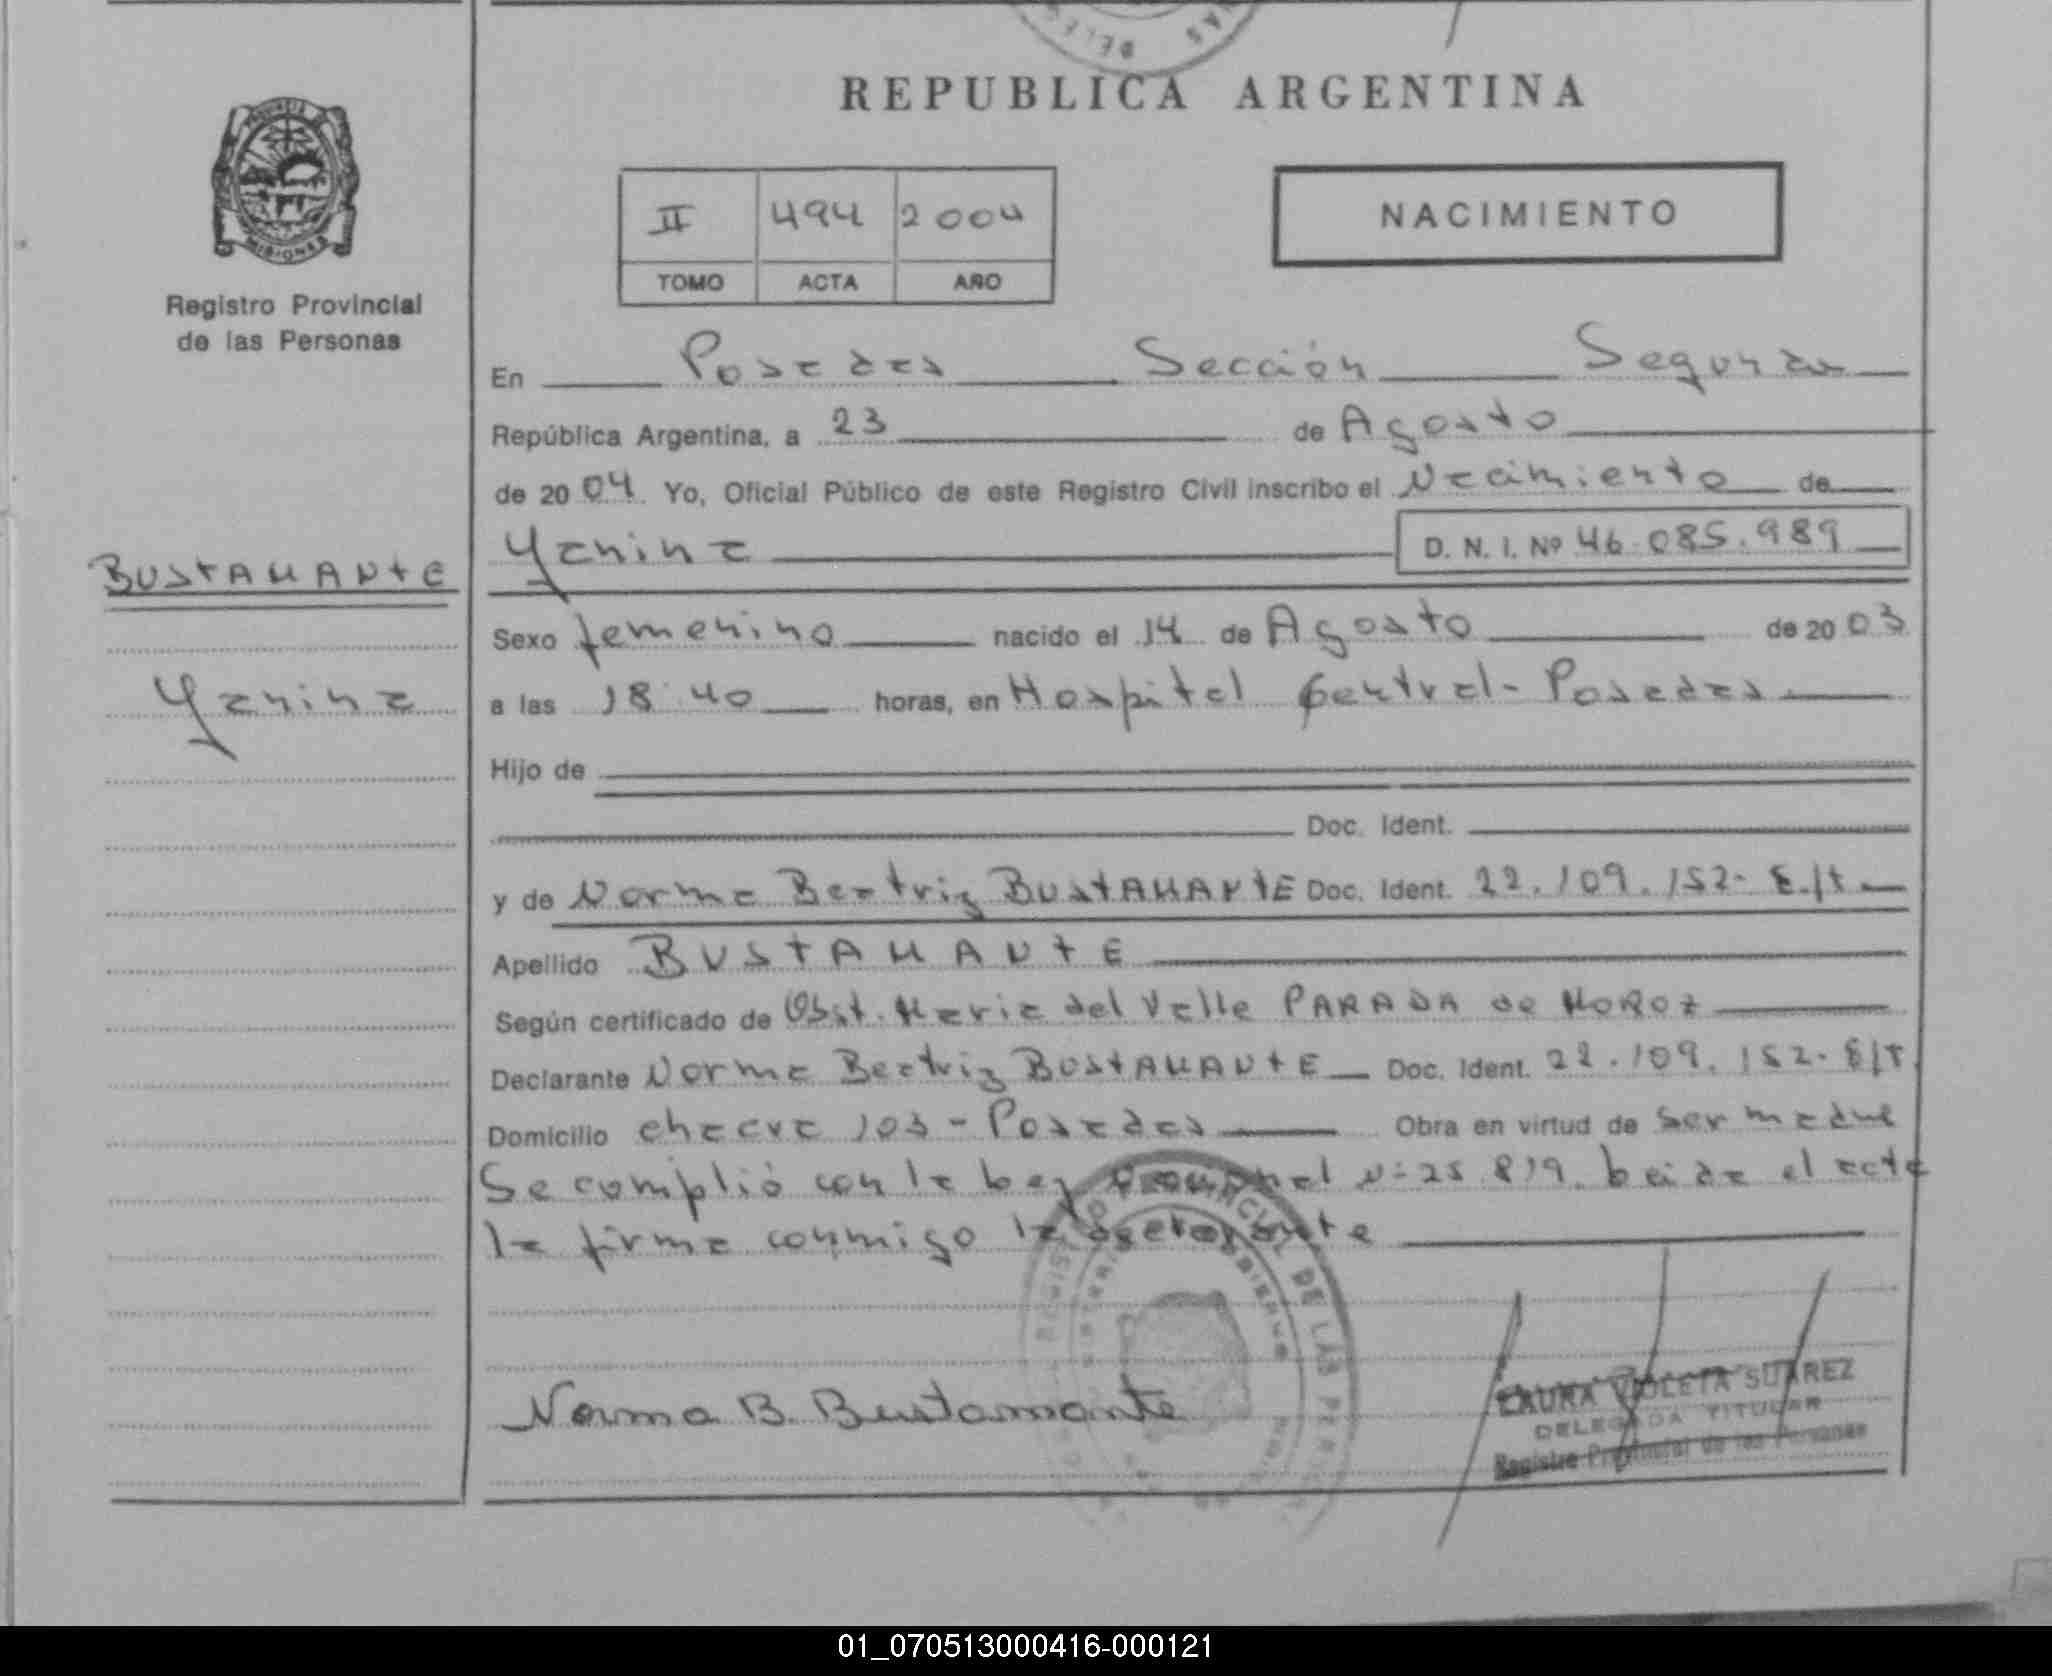 REPUBLICA ARGENTINA
PROVINCIA
MISIONES
Registro Provincial
de las Personas
II 494 2004
TOMO ACTA AÑO
NACIMIENTO
En Posadas Sección Segunda
República Argentina, a 23 de Agosto
de 2004 Yo, Oficial Público de este Registro Civil inscribo el Nacimiento de
Yanina D. N. I. Nº 46.085.989
BUSTAMANTE
Yanina
Sexo femenino nacido el 14 de Agosto de 2003
a las 18:40 horas, en Hospital Central - Posadas
Hijo de
Doc. Ident.
y de Norma Beatriz BUSTAMANTE Doc. Ident. 22.109.152-
Apellido BUSTAMANTE
Según certificado de Obst. Maria del Valle PARADA de MOROZ
Declarante Norma Beatriz BUSTAMANTE Doc. Ident. 22.109.152-
Domicilio chacra 103 - Posadas Obra en virtud de ser madre
Se cumplió con la Ley Nacional Nº 25.819. Leida el acta
la firma conmigo la declarante
Norma B. Bustamante
LAURA VIOLETA SUAREZ
DELEGADA TITULAR
Registro Provincial de las Personas
01_070513000416-000121